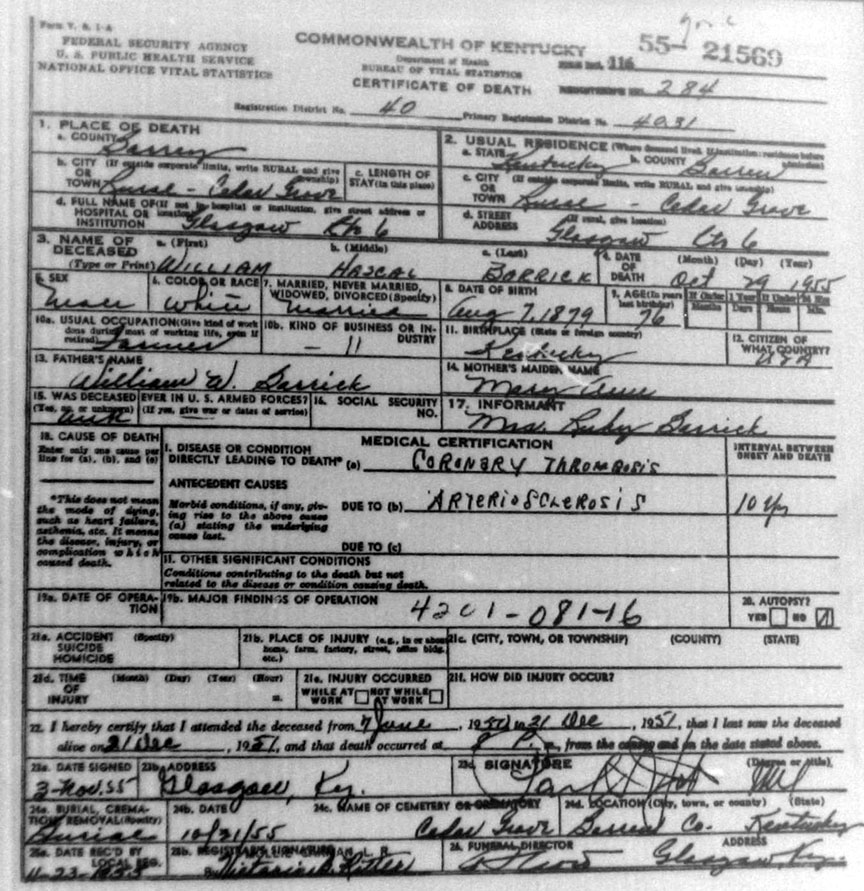 Form V. S. 1-A
FEDERAL SECURITY AGENCY
U. S. PUBLIC HEALTH SERVICE
NATIONAL OFFICE VITAL STATISTICS
COMMONWEALTH OF KENTUCKY
Department of Health
BUREAU OF VITAL STATISTICS
CERTIFICATE OF DEATH
55- 21569
116
284
Registration District No. 40 Primary Registration District No. 4031
1. PLACE OF DEATH
a. COUNTY Barren
b. CITY (If outside corporate limits, write RURAL and give township) OR TOWN Rural - Cedar Grove
c. LENGTH OF STAY (in this place)
d. FULL NAME OF (If not in hospital or institution, give street address or location) HOSPITAL OR INSTITUTION Glasgow Rt 6
2. USUAL RESIDENCE (Where deceased lived. If institution: residence before admission)
a. STATE Kentucky b. COUNTY Barren
c. CITY (If outside corporate limits, write RURAL and give township) OR TOWN Rural - Cedar Grove
d. STREET ADDRESS (If rural, give location) Glasgow Rt 6
3. NAME OF DECEASED (Type or Print) a. (First) WILLIAM b. (Middle) HASCAL c. (Last) BARRICK
4. DATE OF DEATH (Month) (Day) (Year) Oct 29 1955
5. SEX Male
6. COLOR OR RACE White
7. MARRIED, NEVER MARRIED, WIDOWED, DIVORCED (Specify) Married
8. DATE OF BIRTH Aug 7, 1879
9. AGE (In years last birthday) 76 If Under 1 Year Months Days If Under 24 Hrs Hours Min.
10a. USUAL OCCUPATION (Give kind of work done during most of working life, even if retired) Farmer
10b. KIND OF BUSINESS OR INDUSTRY - 11
11. BIRTHPLACE (State or foreign country) Kentucky
12. CITIZEN OF WHAT COUNTRY? USA
13. FATHER'S NAME William W. Barrick
14. MOTHER'S MAIDEN NAME Mary Ann
15. WAS DECEASED EVER IN U. S. ARMED FORCES? (Yes, no, or unknown) (If yes, give war or dates of service) unk
16. SOCIAL SECURITY NO.
17. INFORMANT Mrs. Ruby Barrick
18. CAUSE OF DEATH
Enter only one cause per line for (a), (b), and (c)
*This does not mean the mode of dying, such as heart failure, asthenia, etc. It means the disease, injury, or complication which caused death.
MEDICAL CERTIFICATION
INTERVAL BETWEEN ONSET AND DEATH
I. DISEASE OR CONDITION DIRECTLY LEADING TO DEATH* (a) CORONARY THROMBOSIS
ANTECEDENT CAUSES
Morbid conditions, if any, giving rise to the above cause (a) stating the underlying cause last.
DUE TO (b) ARTERIOSCLEROSIS 10 yr
DUE TO (c)
II. OTHER SIGNIFICANT CONDITIONS
Conditions contributing to the death but not related to the disease or condition causing death.
19a. DATE OF OPERATION
19b. MAJOR FINDINGS OF OPERATION
4201-081-16
20. AUTOPSY? YES NO
21a. ACCIDENT SUICIDE HOMICIDE (Specify)
21b. PLACE OF INJURY (e.g., in or about home, farm, factory, street, office bldg. etc.)
21c. (CITY, TOWN, OR TOWNSHIP) (COUNTY) (STATE)
21d. TIME OF INJURY (Month) (Day) (Year) (Hour) m.
21e. INJURY OCCURRED WHILE AT WORK NOT WHILE AT WORK
21f. HOW DID INJURY OCCUR?
22. I hereby certify that I attended the deceased from 7 June, 1951 to 21 Dec, 1951, that I last saw the deceased
alive on 21 Dec, 1951, and that death occurred at 8 P. m., from the causes and on the date stated above.
23a. DATE SIGNED 3-Nov.55
23b. ADDRESS Glasgow, Ky.
23c. SIGNATURE (Degree or title) MD
24a. BURIAL, CREMATION REMOVAL (Specify) Burial
24b. DATE 10/31/55
24c. NAME OF CEMETERY OR CREMATORY Cedar Grove
24d. LOCATION (City, town, or county) (State) Barren Co. Kentucky
25a. DATE REC'D BY LOCAL REG. 11-23-1955
25b. REGISTRAR'S SIGNATURE Victoria B. Ritter
26. FUNERAL DIRECTOR
ADDRESS Glasgow, Ky.